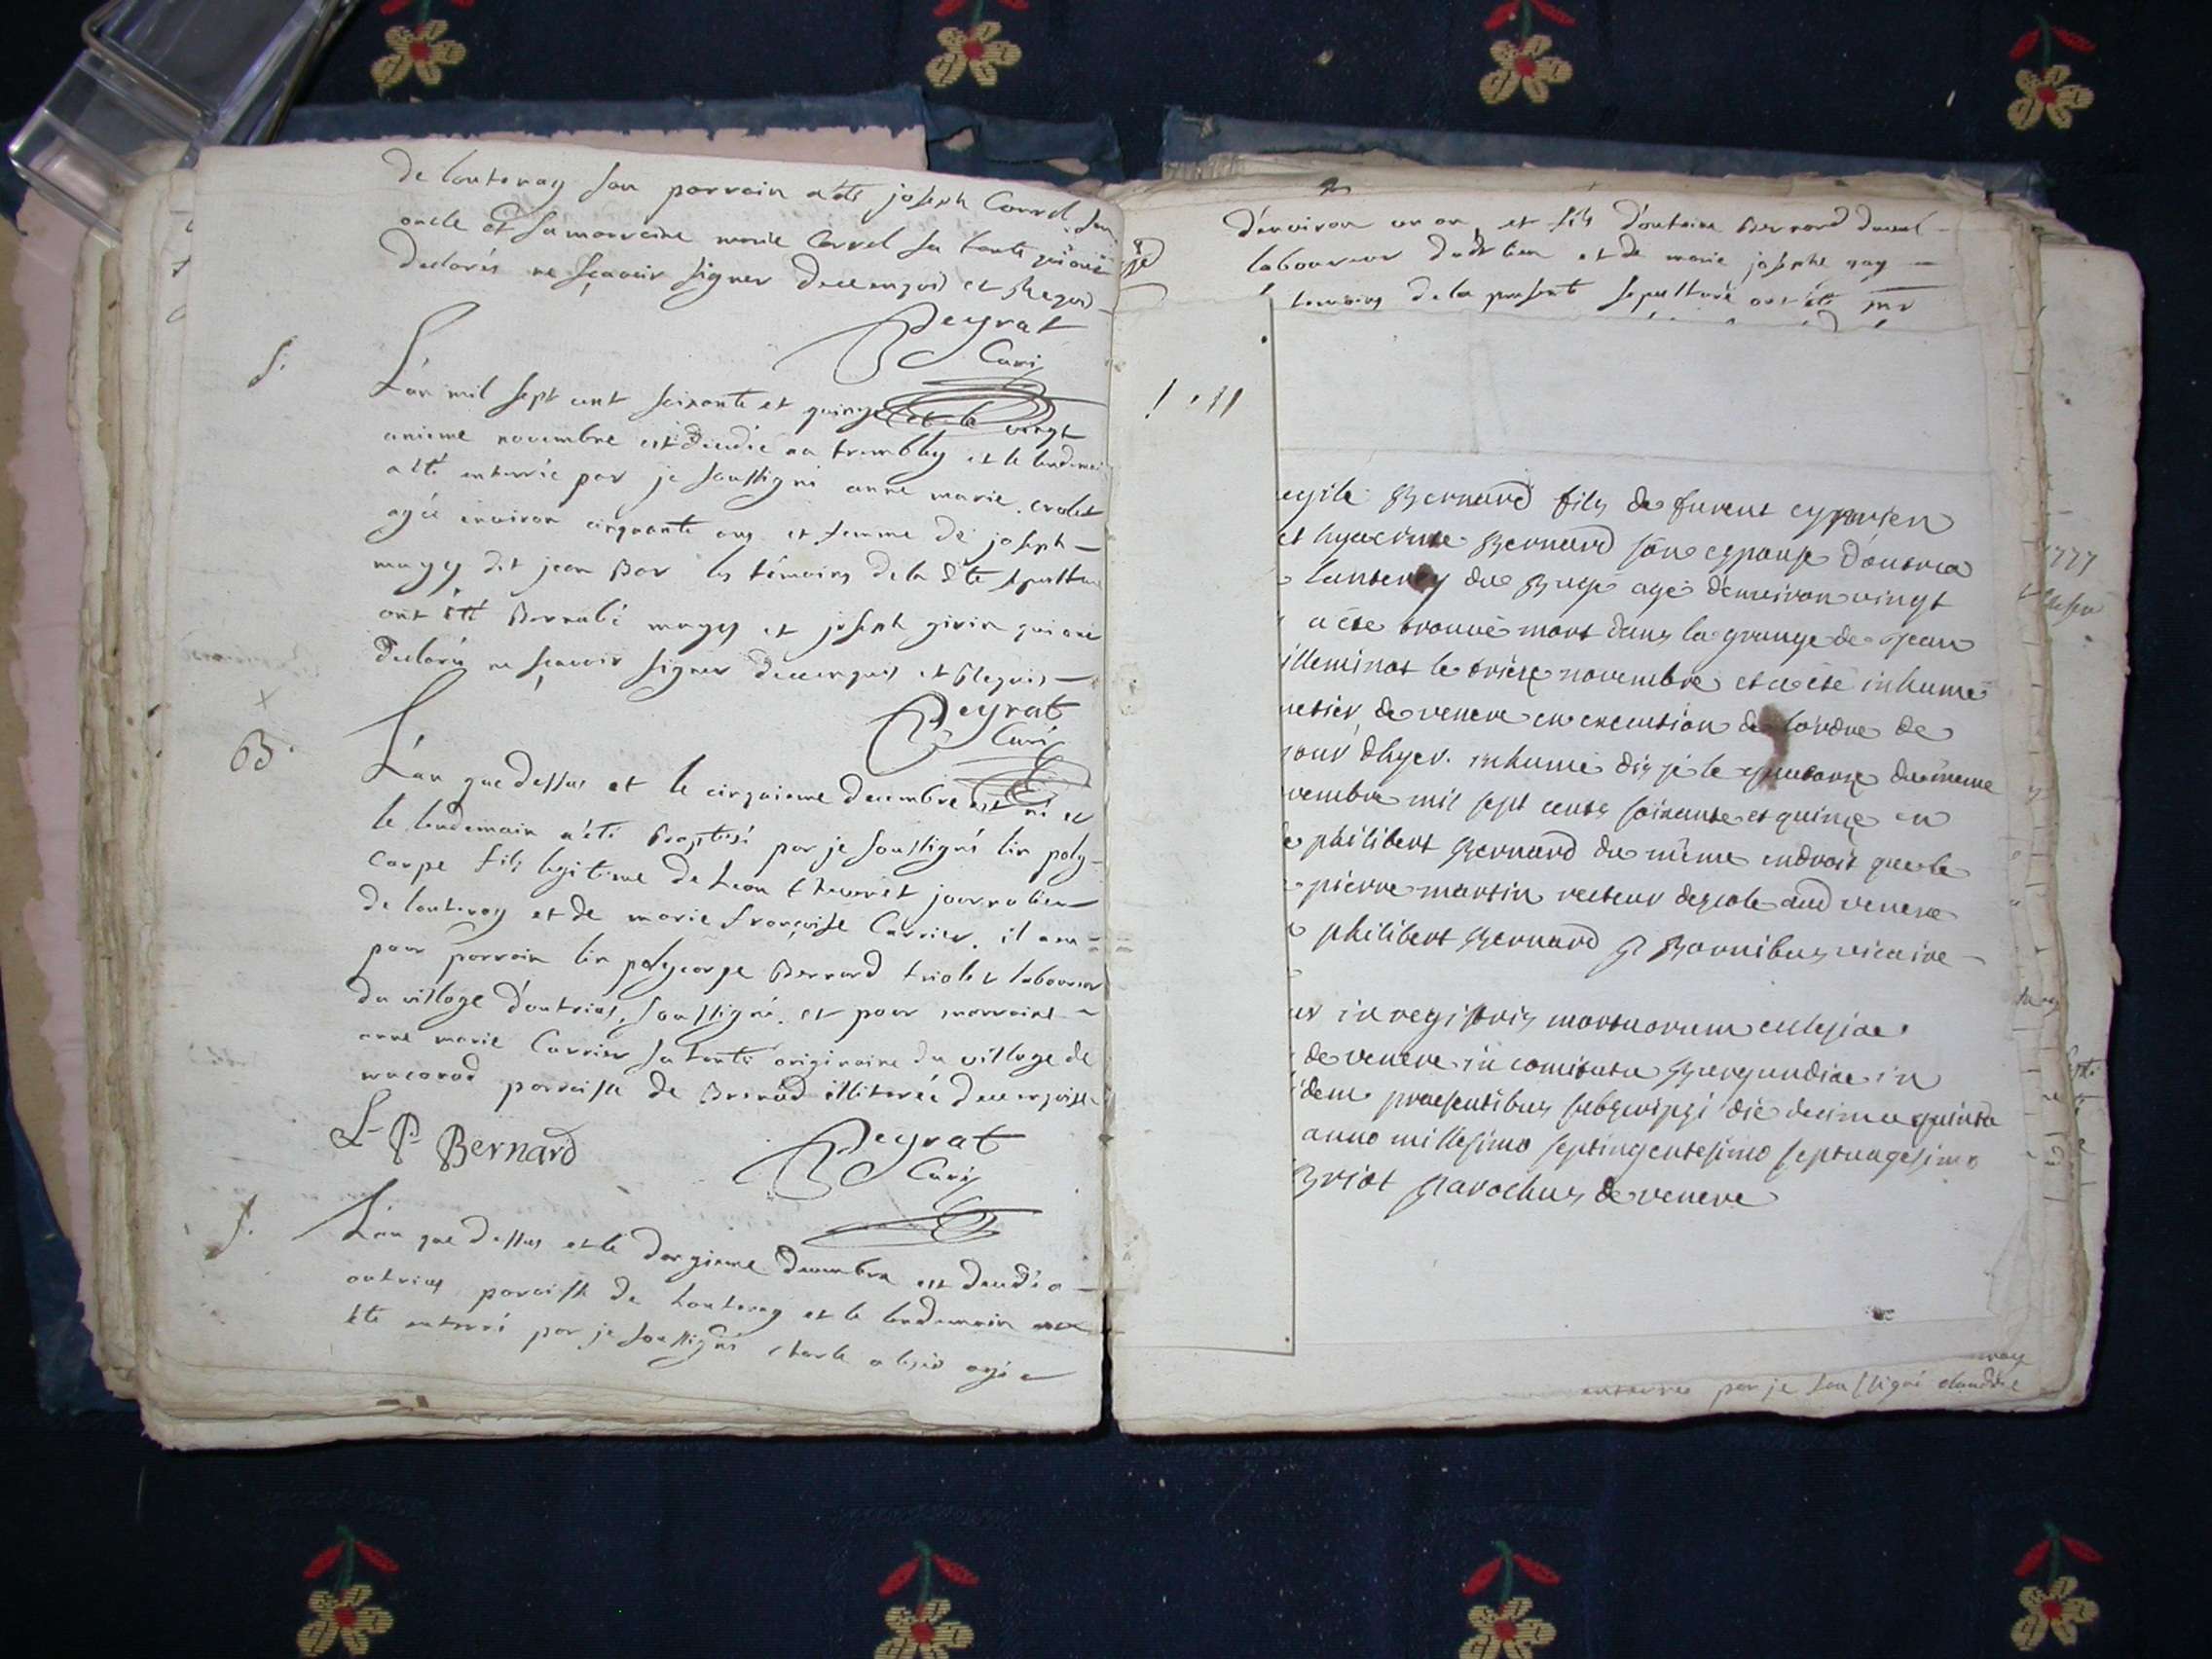 de lantenay son parrain a été joseph Carrel son
oncle et sa marraine marie Carrel sa tante qui ont
declarés ne sçavoir signer de ce enquis et Requis
Peyrat
Curé
S.
L'an mil sept cent soixante et quinze et le vingt
unieme novembre est décédée au tremblay et le lendemain
a été enterrée par je soussigné anne marie crolet
agée environ cinquante ans et femme de joseph
maysy dit jean Bor les témoins de la dte sepulture
ont été Barnabé maysy et joseph girin qui ont
declarés ne sçavoir signer de ce enquis et Requis
Peyrat
Curé
B.
L'an que dessus et le cinquieme decembre est né et
le lendemain a été Baptisé par je soussigné lin poly
Carpe fils legitime de Leon thevenet journalier
de lantenay et de marie françoise Carrier. il a eu
pour parrain lin polycarpe Bernard laboureur
du village d'outriaz, soussigné, et pour marraine
anne marie Carrier sa tante originaire du village de
macorod parroisse de Brenod illiterée de ce enquise
L. P. Bernard
Peyrat
Curé
S.
L'an que dessus et le décembre est decedé a
outriaz paroisse de Lantenay et le lendemain
été enterré par je soussigné charle alexis agé
d'environ un an et fils d'antoine Bernard
laboureur dudt lieu et de marie josephe
temoins de la presente sepulture ont été
Bernard fils de furent cyprien
et hyacinte Bernard son espouse d'outria
Lantenay du Buge agé d'environ vingt
a été trouvé mort dans la grange de jean
illeminot le treize novembre et a été inhumé
netier de venere en execution de l'ordre de
jour d'hyer. inhumé dis je le quatorze du meme
vembre mil sept cents soixante et quinze en
philibert Bernard du même endroit que le
pierre martin recteur d'ecole aud venere
philibert Bernard P Bornibus vicaire
in registris mortuorum eclesiae
de venere in comitatu Burgundiae in
idem praesentibus subscripsi die decima quinta
anno millesimo septingentesimo septuagesimo
Briot parochus de venere
enterrée par je soussigné claudine
1777